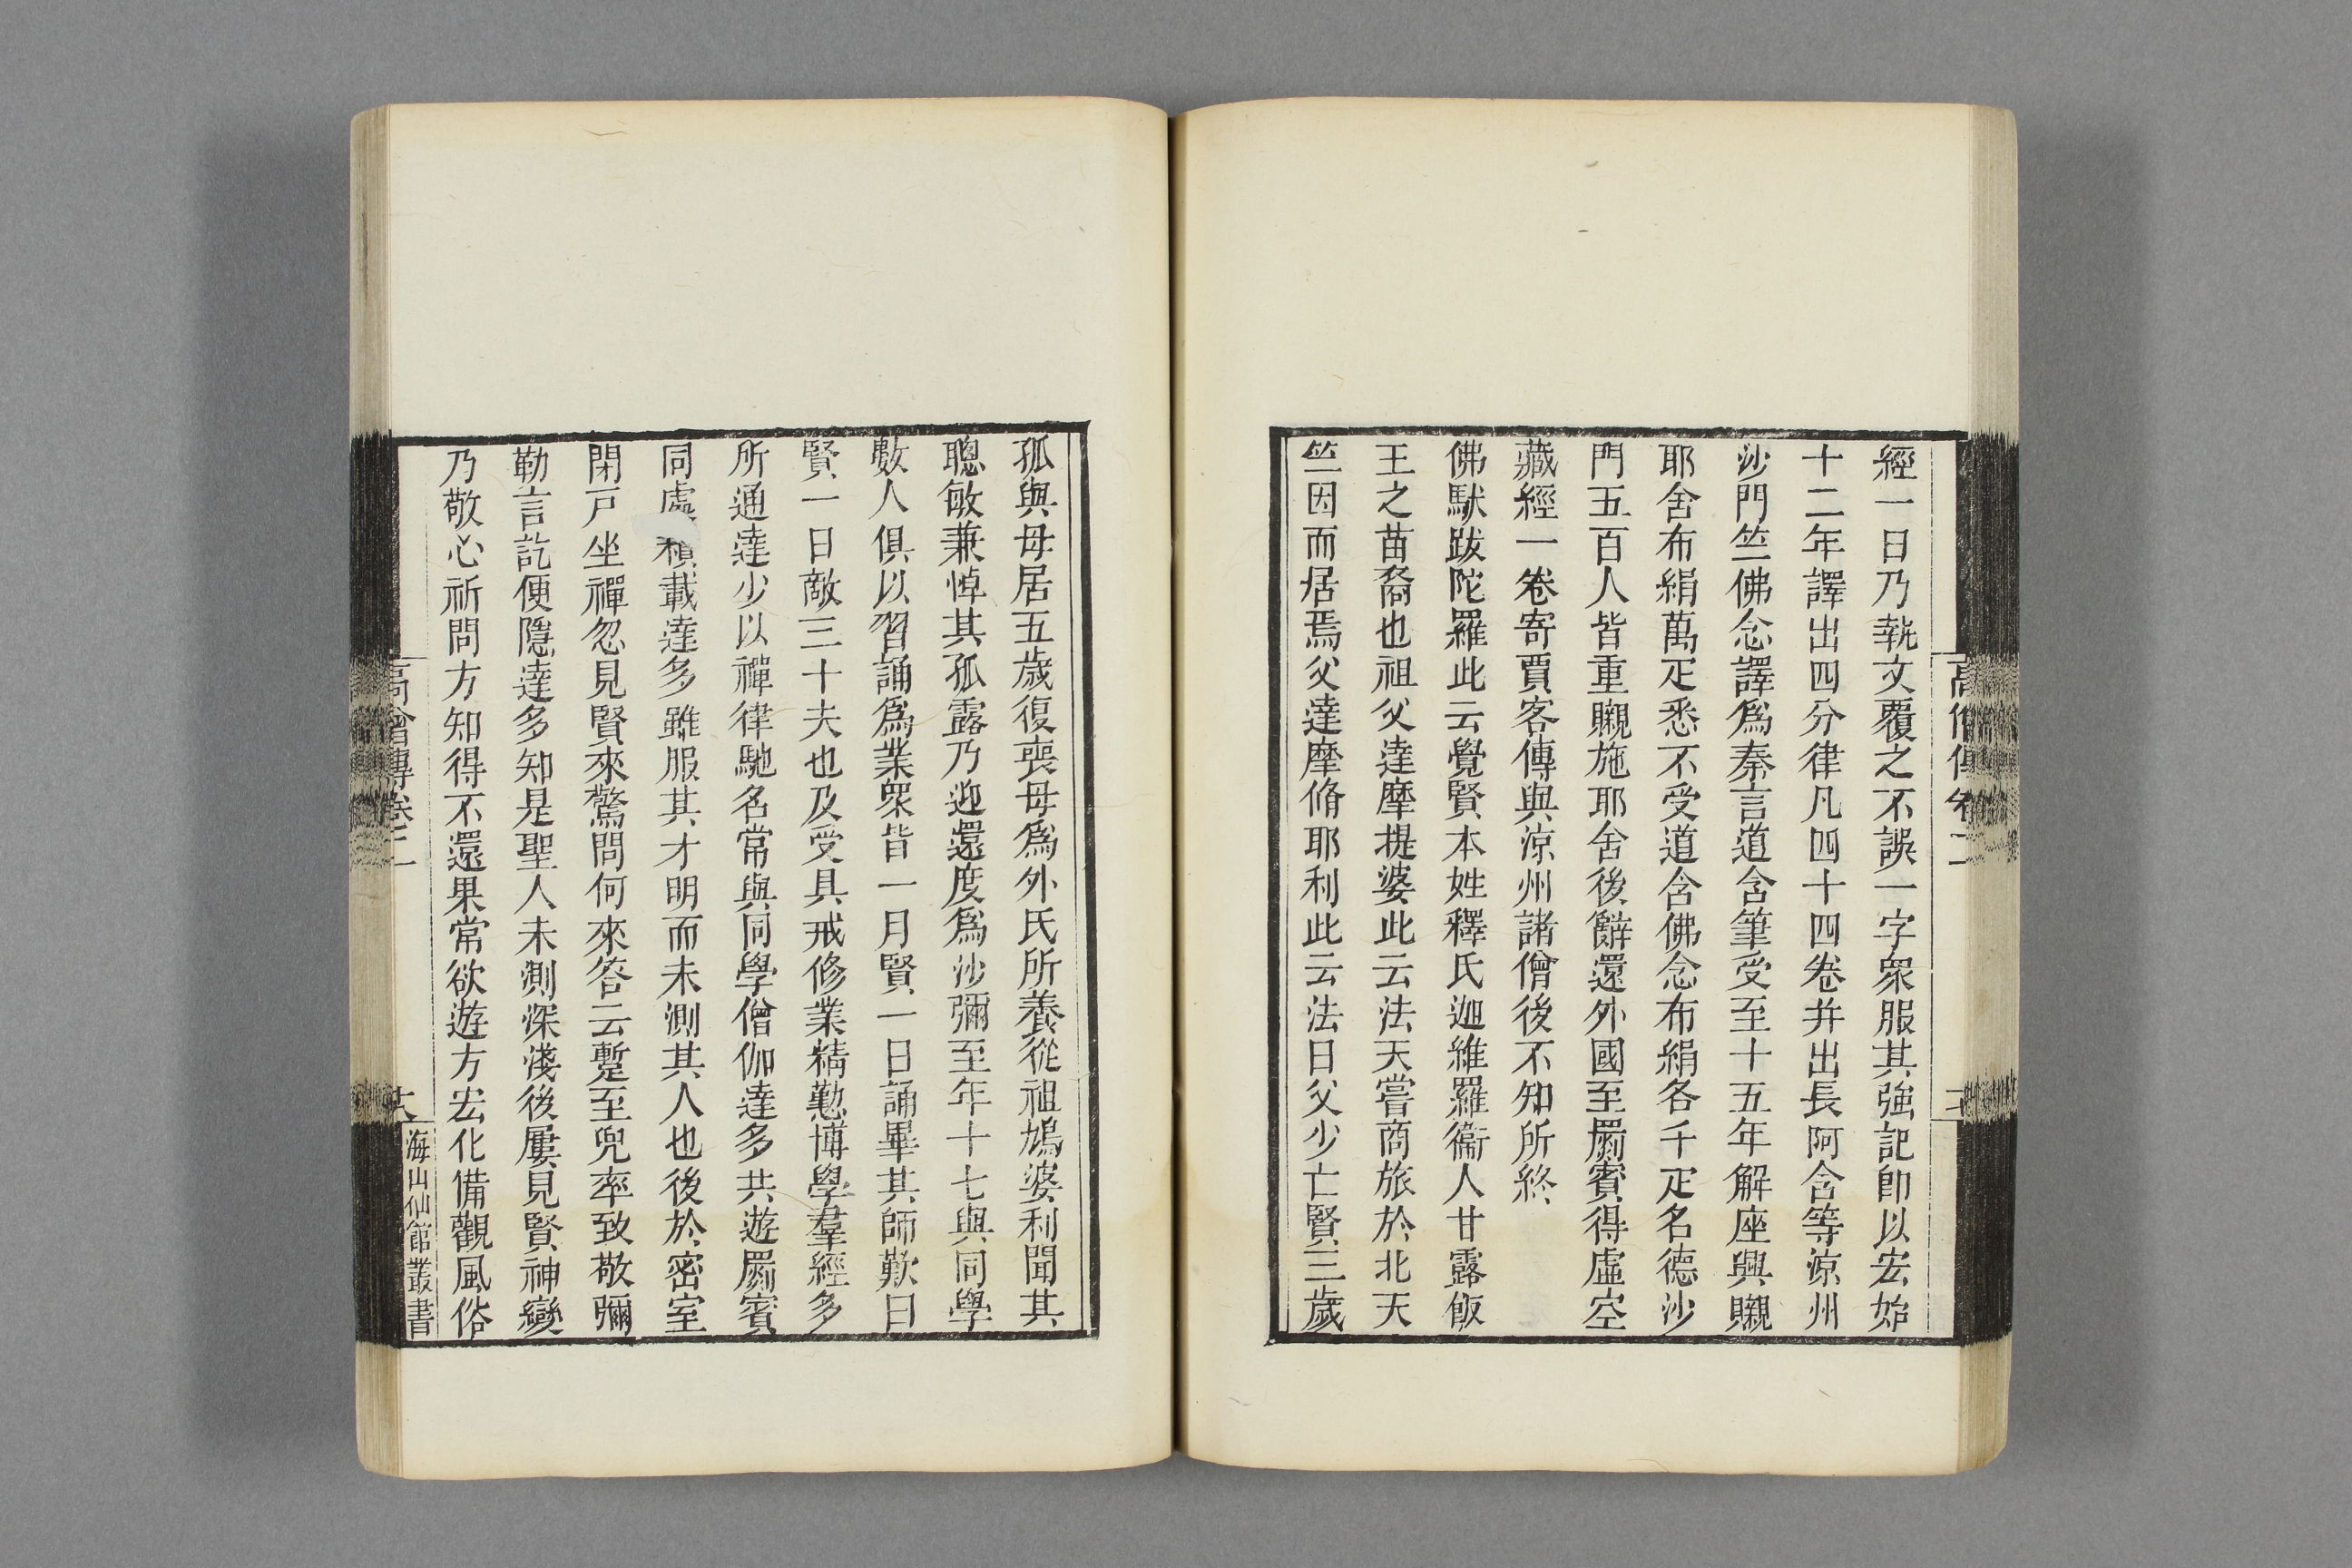 經一日乃執文覆之不誤一字眾服其強記即以宏始
十二年譯出四分律凡四十四卷并出長阿含等涼州
沙門竺佛念譯爲秦言道含筆受至十五年解座興嚫
耶舍布絹萬疋悉不受道含佛念布絹各千疋名德沙
門五百人皆重嚫施耶舍後辭還外國至罽賓得虛空
藏經一卷寄賈客傳與涼州諸僧後不知所終
佛馱跋陀羅此云覺賢本姓釋氏迦維羅衞人甘露飯
王之苗裔也祖父達摩提婆此云法天嘗商旅於北天
竺因而居焉父達摩脩耶利此云法日父少亡賢三歲
孤與母居五歲復喪母爲外氏所養從祖鳩婆利聞其
聰敏兼悼其孤露乃迎還度爲沙彌至年十七與同學
數人俱以習誦爲業眾皆一月賢一日誦畢其師歎曰
賢一日敵三十夫也及受具戒修業精懃博學羣經多
所通達少以禪律馳名常與同學僧伽達多共遊罽賓
同處積載達多雖服其才明而未測其人也後於密室
閉戸坐禪忽見賢來驚問何來答云蹔至兜率致敬彌
勒言訖便隱達多知是聖人未測深淺後屢見賢神變
乃敬心祈問方知得不還果常欲遊方宏化備觀風俗
高僧傳卷二
海山仙館叢書